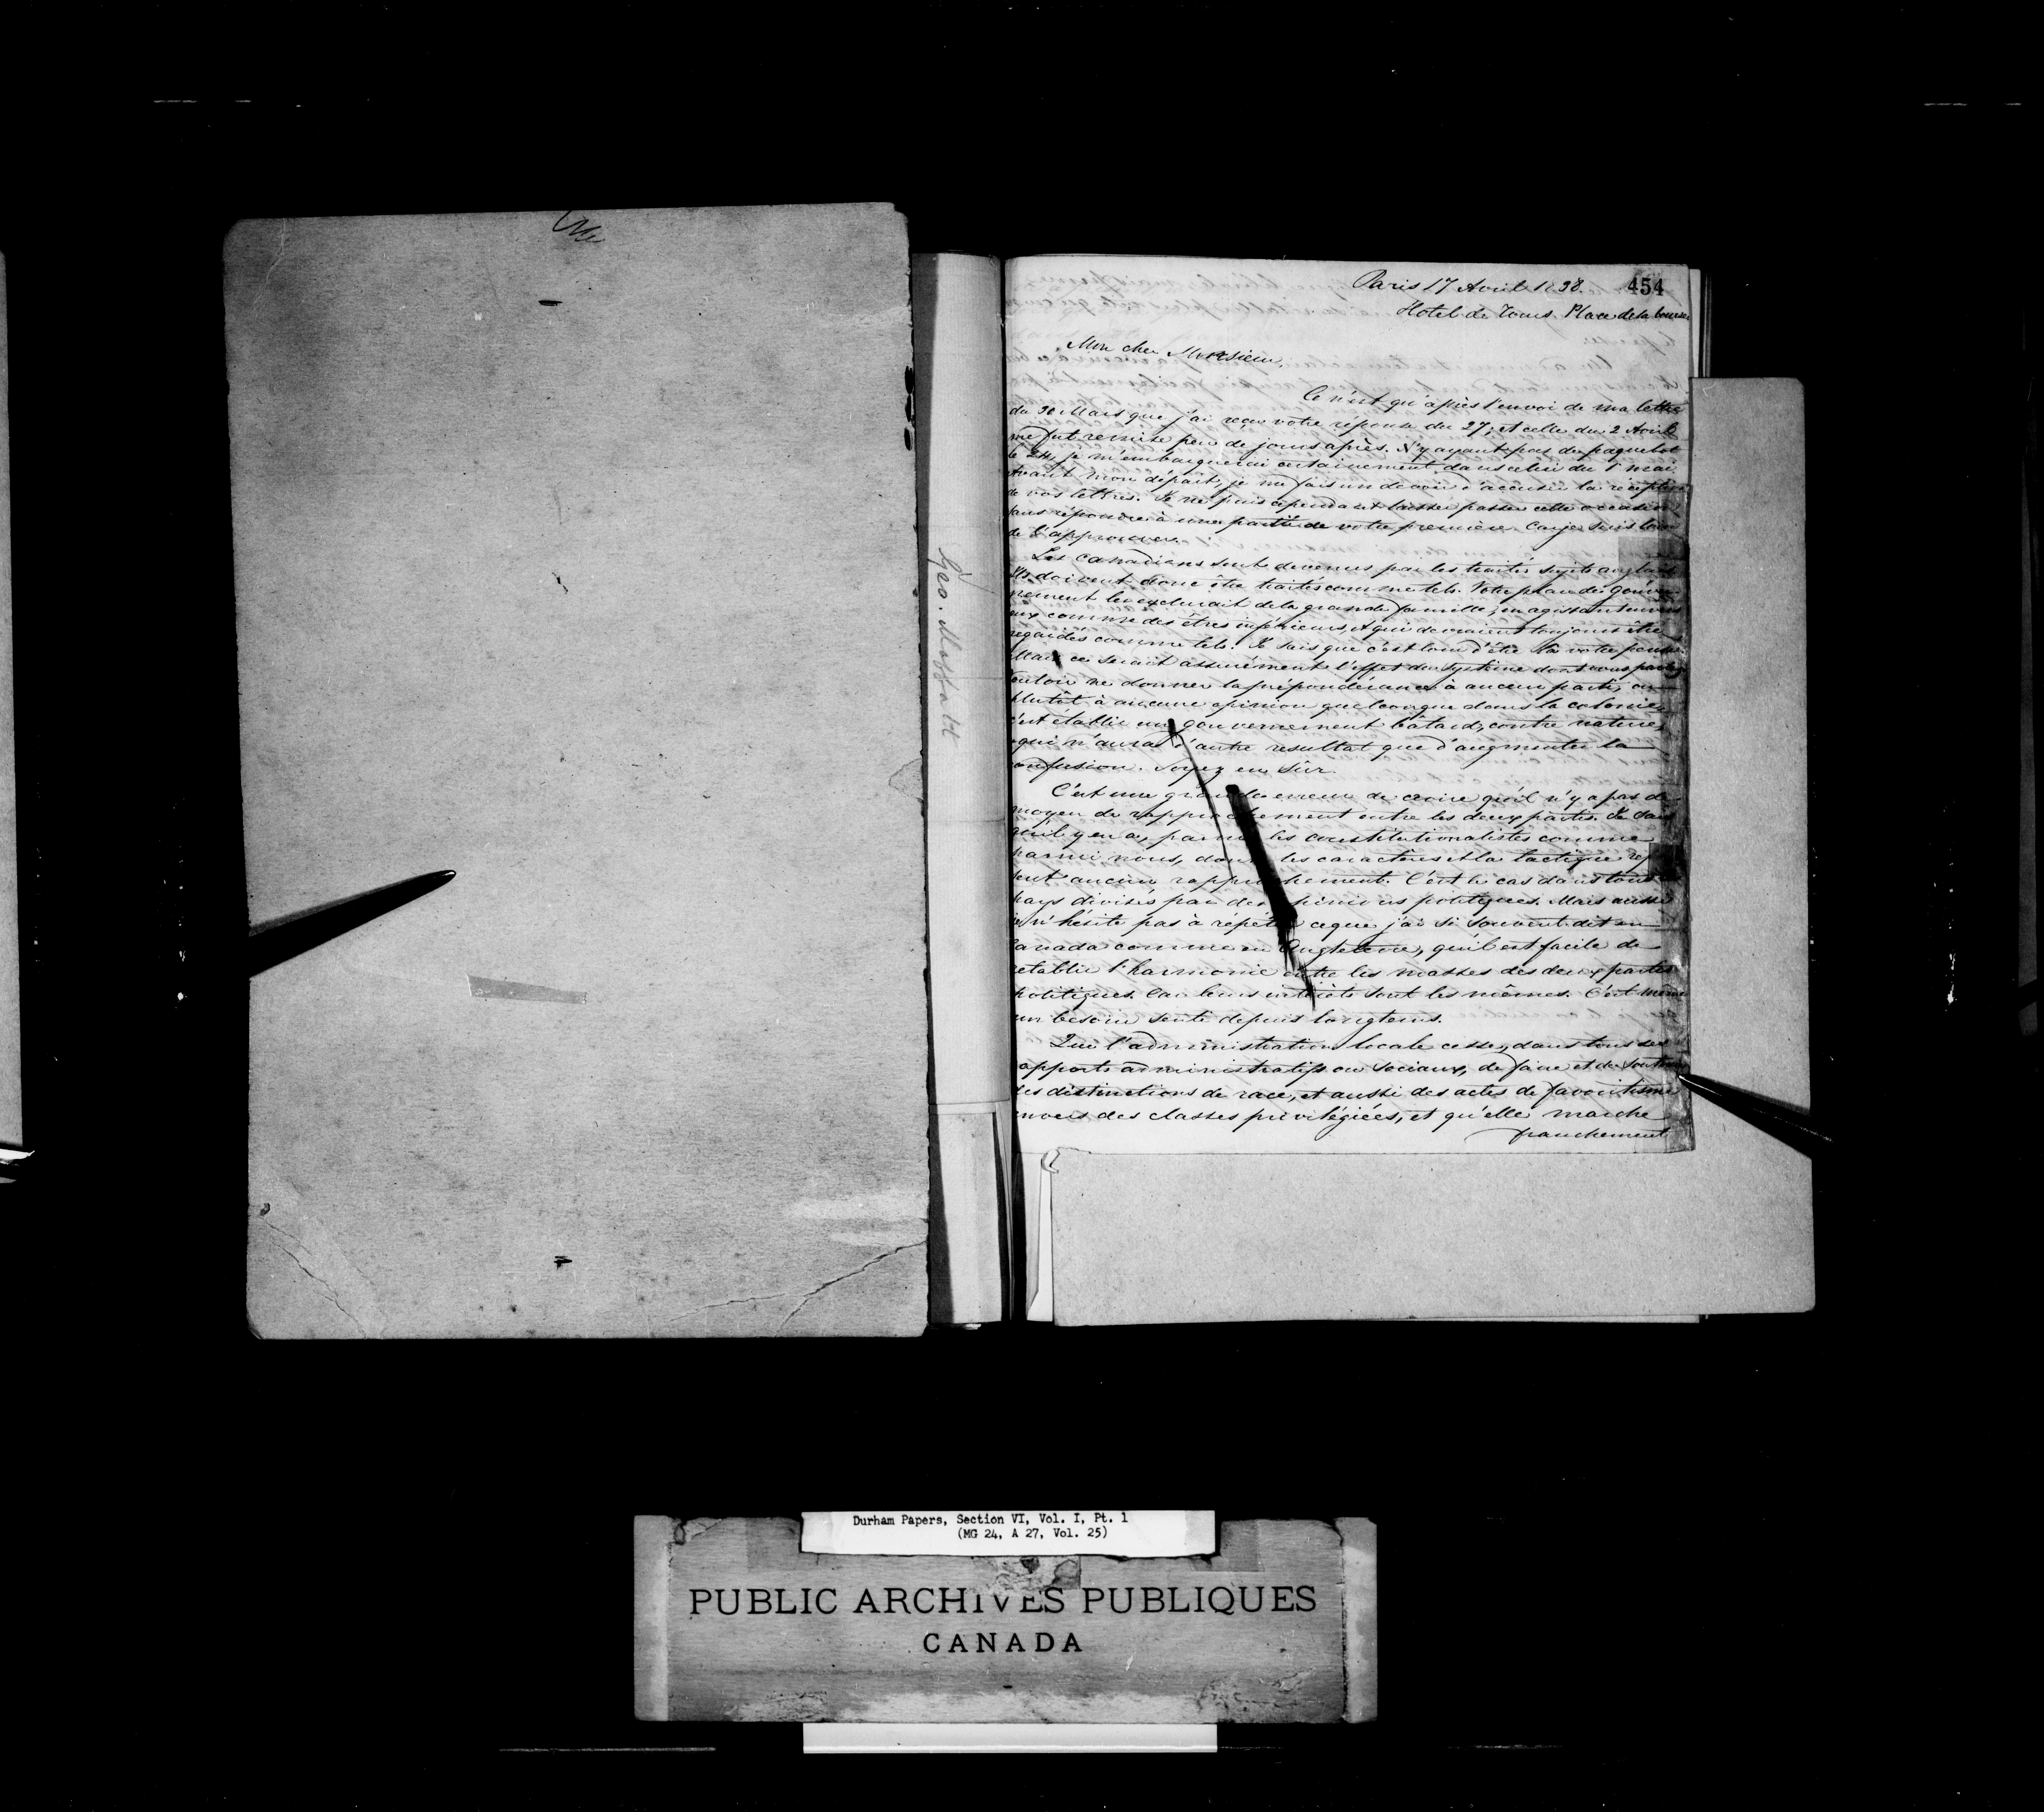 Paris 17 Avril 1838. 454
Hotel de Tours. Place de la bourse
Mon cher Monsieur,
Ce n'est qu'après l'envoi de ma lettre
du 30 Mars que j'ai reçu votre réponse du 27; et celle du 2 Avril
me fut remise peu de jours après. N'y ayant pas de paquebot
le 24, je m'embarquerai certainement dans celui du 1r mai
Avant mon départ, je me fais un devoir d'accuser la réception
de vos lettres. Je ne puis cependant laisser passer cette occasion
sans répondre à une partie de votre première. Car je suis loin
de l'approuver.
Les Canadiens sont devenus par les traités sujets anglais
Ils doivent donc être traités comme tels. Votre plan de Gouver-
nement les exclurait de la grande famille, en agissant envers
eux comme des êtres inférieurs, et qui devraient toujours être
regardés comme tels. Je sais que c'est loin d'être là votre pensée.
Mais ce serait assurément l'effet du système dont vous parlez
vouloir ne donner la prépondérance à aucun parti, ou
plutôt à aucune opinion quelconque dans la colonie,
c'est établir un gouvernement bâtard, contre nature,
qui n'aura d'autre resultat que d'augmenter la
confusion. Soyez en sûr.
C'est une grande erreur de croire qu'il n'y a pas de
moyen de rapprochement entre les deux partis. Je sais
qu'il y en a, parmi les constitutionalistes comme
parmi nous, dont les caractères et la tactique
aucun rapprochement. C'est le cas dans tous
pays divisés par des opinions politiques. Mais aussi
je n'hésite pas à répéter ce que j'ai si souvent dit en
Canada comme en Angleterre, qu'il est facile de
retablir l'harmonie entre les masses des deux partis
politiques. Car leurs intérêts sont les mêmes. C'est même
un besoin senti depuis longtems.
Que l'administration locale cesse, dans tous ses
rapports administratifs ou sociaux, de faire et de soutenir
des distinctions de race, et aussi des actes de favoritisme
envers des classes privilégiées, et qu'elle marche
franchement
Geo. Moffatt
Durham Papers, Section VI, Vol. I, Pt. 1
(MG 24, A 27, Vol. 25)
PUBLIC ARCHIVES PUBLIQUES
CANADA